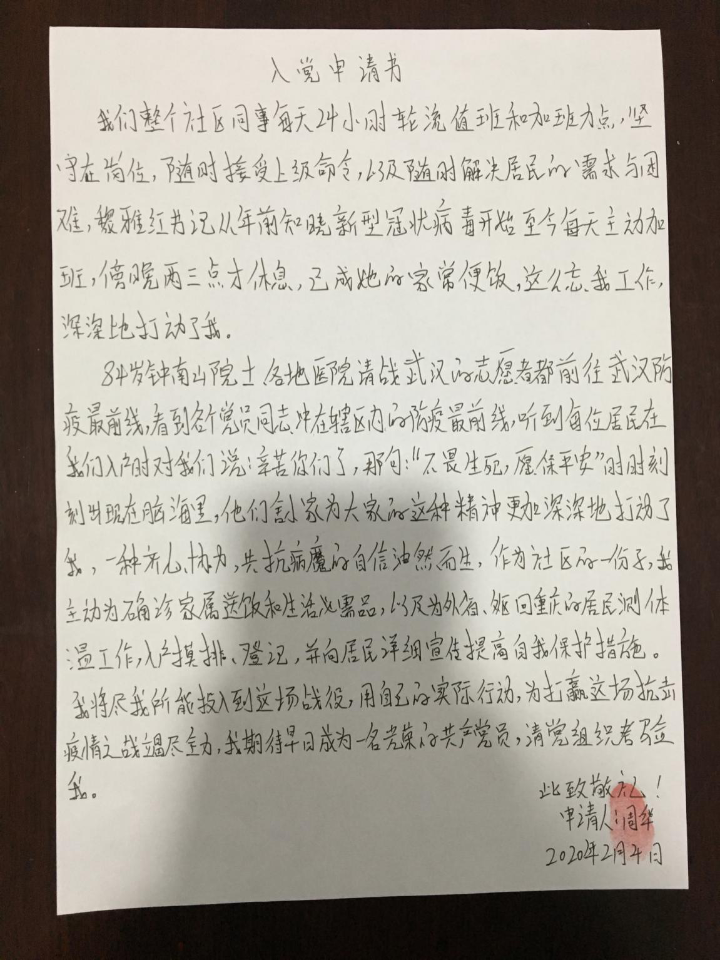 入党申请书
我们整个社区同事每天24小时轮流值班和加班加点,坚
守在岗位,随时接受上级命令,以及随时解决居民的需求与困
难,黎雅红书记从年前知晓新型冠状病毒开始至今每天主动加
班,傍晚两三点才休息,已成她的家常便饭,这么忘我工作,
深深地打动了我。
84岁钟南山院士、各地医院请战武汉的志愿者都前往武汉防
疫最前线,看到各个党员同志冲在辖区内的防疫最前线,听到每位居民在
我们入户时对我们说:辛苦你们了,那句:“不畏生死,愿保平安”时时刻
刻出现在脑海里,他们割家为大家的这种精神更加深深地打动了
我,一种齐心协力,共抗病魔的自信油然而生,作为社区的一份子,我
主动为确诊家属送饭和生活必需品,以及为外省、返回重庆的居民测体
温工作,入户摸排、登记,并向居民详细宣传提高自我保护措施。
我将尽我所能投入到这场战役,用自己的实际行动,为打赢这场抗击
疫情之战竭尽全力,我期待早日成为一名光荣的共产党员,请党组织考验
我。
此致敬礼!
申请人:周华
2020年2月4日